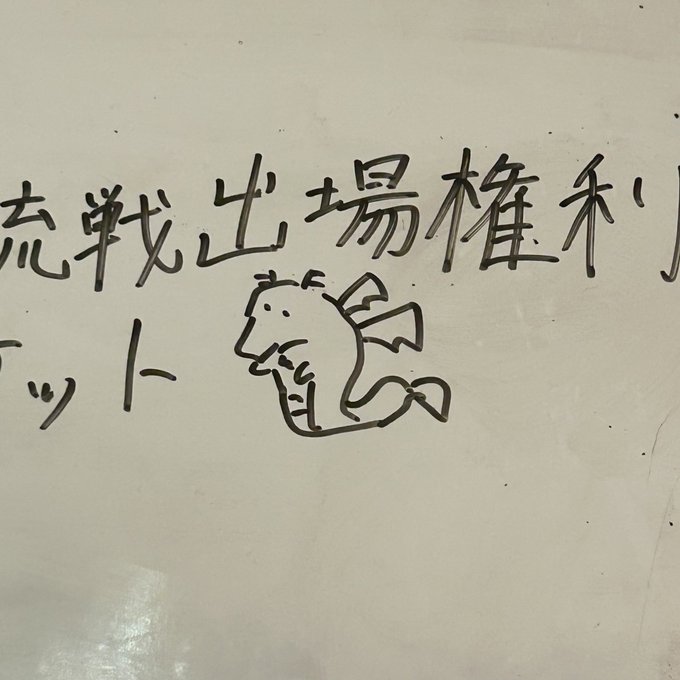 流戦出場権利
ケット